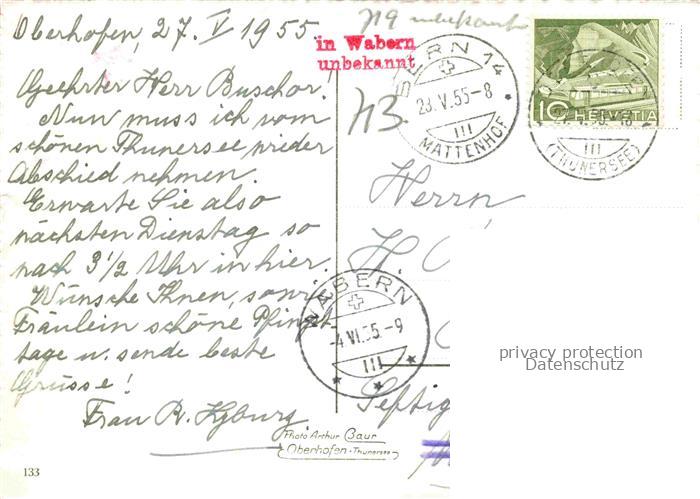 Oberhofen, 27. V 1955.
Geehrter Herr Buschor.
Nun muss ich vom
schönen Thunersee wieder
Abschied nehmen.
Erwarte Sie also
nächsten Dienstag so
nach 3 1/2 Uhr in hier.
Wünsche Ihnen, sowie
Fräulein schöne Pfingst-
tage u. sende beste
Grüsse!
Frau R. Kyburg
133
Photo Arthur Baur
Oberhofen - Thunersee
in Wabern
unbekannt
719 unbekannt
BERN 14
28.V.55-8
III
MATTENHOF
10 HELVETIA
III
(THUNERSEE)
Herrn
H.
WABERN
-4.VI.55.-9
III
Seftig
privacy protection
Datenschutz